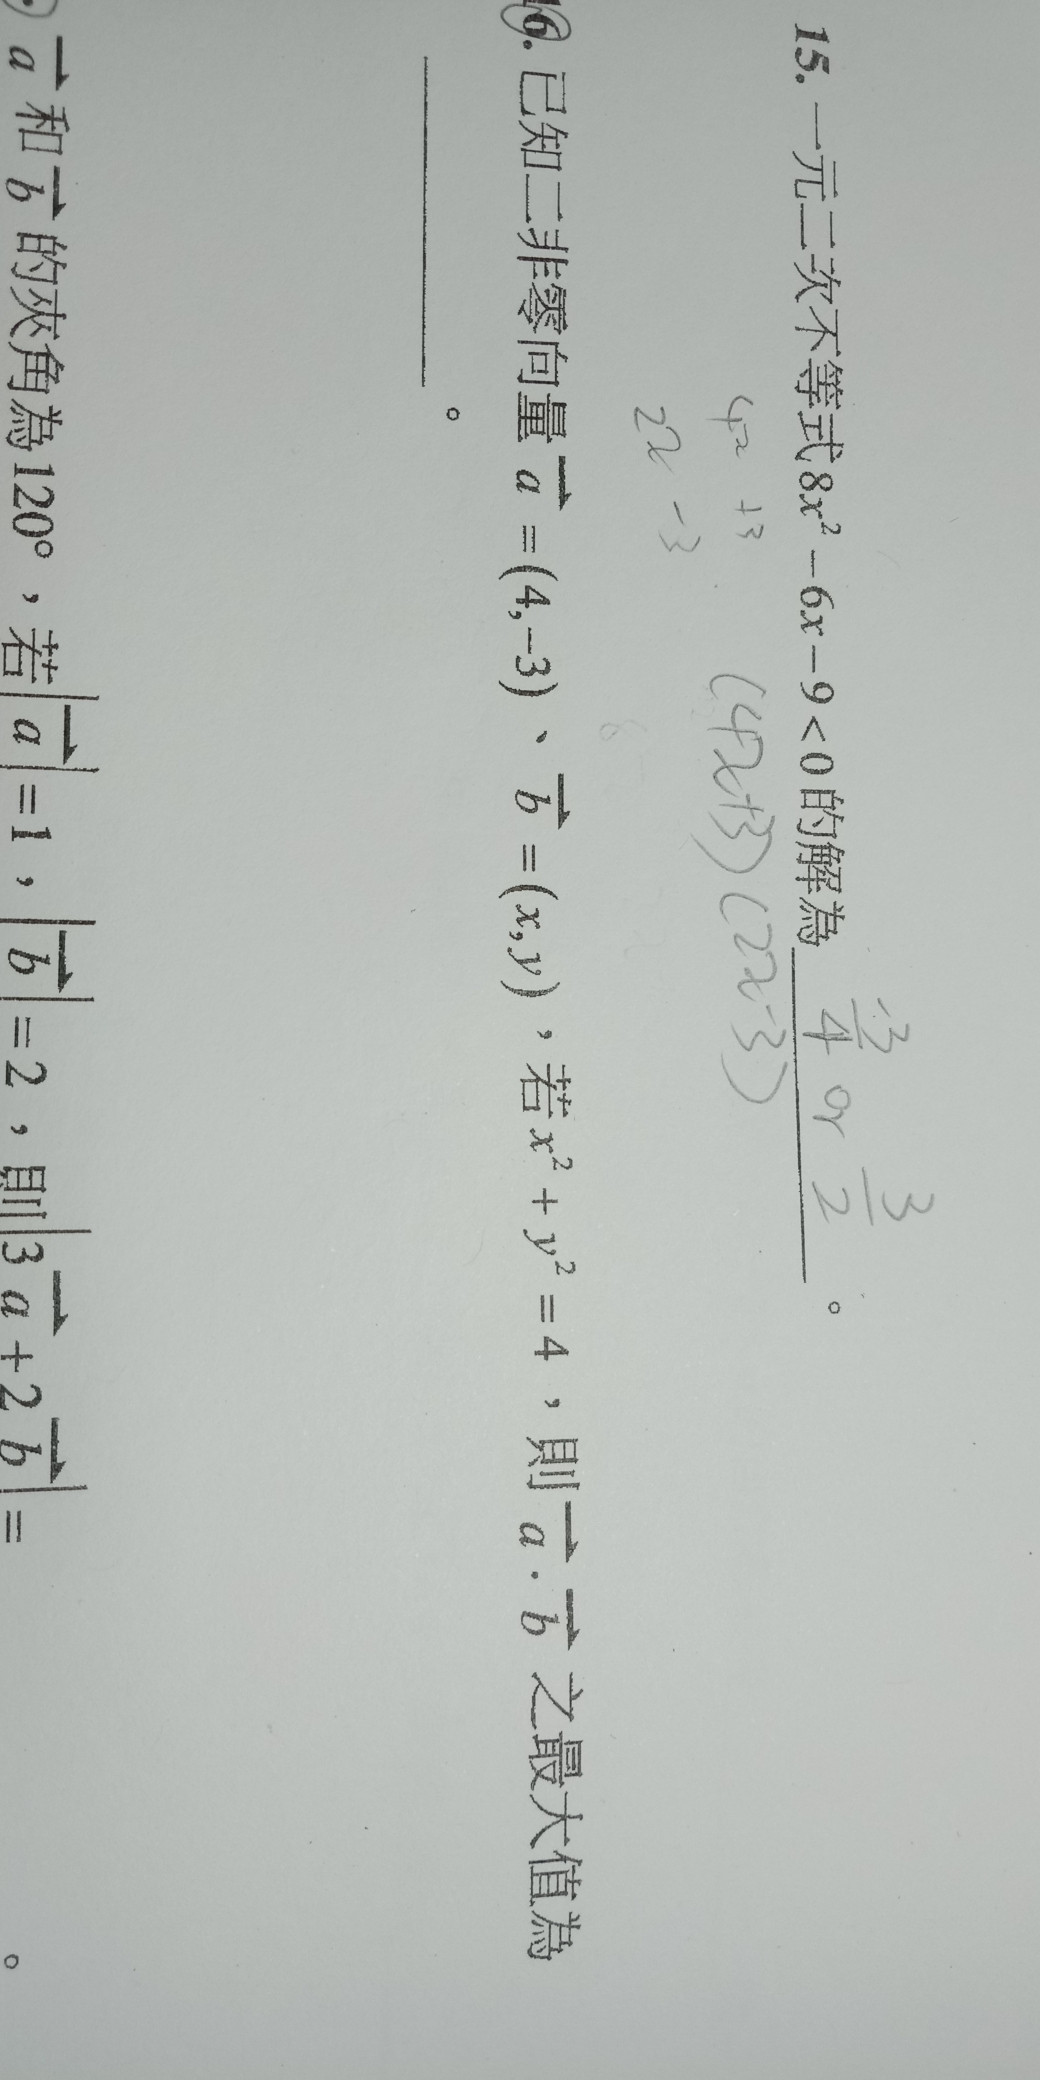 15. 一元二次不等式 8x² − 6x − 9 < 0 的解為 -3/4 or 3/2 。
4x +3 (4x+3) (2x-3)
2x -3
16. 已知二非零向量 a⃗ = (4, −3)、b⃗ = (x, y),若 x² + y² = 4,則 a⃗ · b⃗ 之最大值為
________。
a⃗ 和 b⃗ 的夾角為120°,若|a⃗|=1,|b⃗|=2,則|3a⃗+2b⃗|= 。